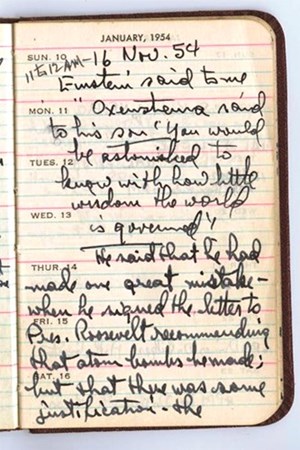 JANUARY, 1954
SUN. 10
11 to 12 AM - 16 Nov. 54
Einstein said to me
MON. 11
"Oxenstierna said
to his son "You would
be astonished to
TUES. 12
know with how little
wisdom the world
WED. 13
is governed"!
He said that he had
THUR 14
made one great mistake -
when he signed the letter to
FRI. 15
Pres. Roosevelt recommending
that atom bombs be made;
SAT. 16
but that there was some
justification - the